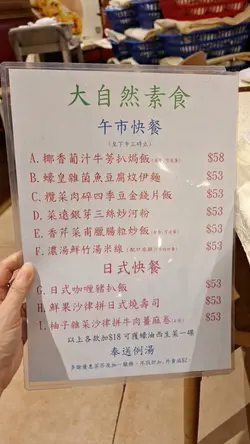 大自然素食
午市快餐
A. 椰香葡汁牛蒡扒焗飯 $58
B. 蠔皇雜菌魚豆腐炆伊麵 $53
C. 欖菜肉碎四季豆金錢片飯 $53
D. 菜遠銀芽三絲炒河粉 $53
E. 香芹菜甫臘腸粒炒飯 $53
F. 濃湯鮮竹湯米線 $53
日式快餐
G. 日式咖喱豬扒飯 $53
H. 鮮果沙律拼日式燒壽司 $53
I. 柚子雜菜沙律拼牛肉蔓蔴卷 $53
以上各款加$18 可獲蠔油西生菜一碟
奉送例湯